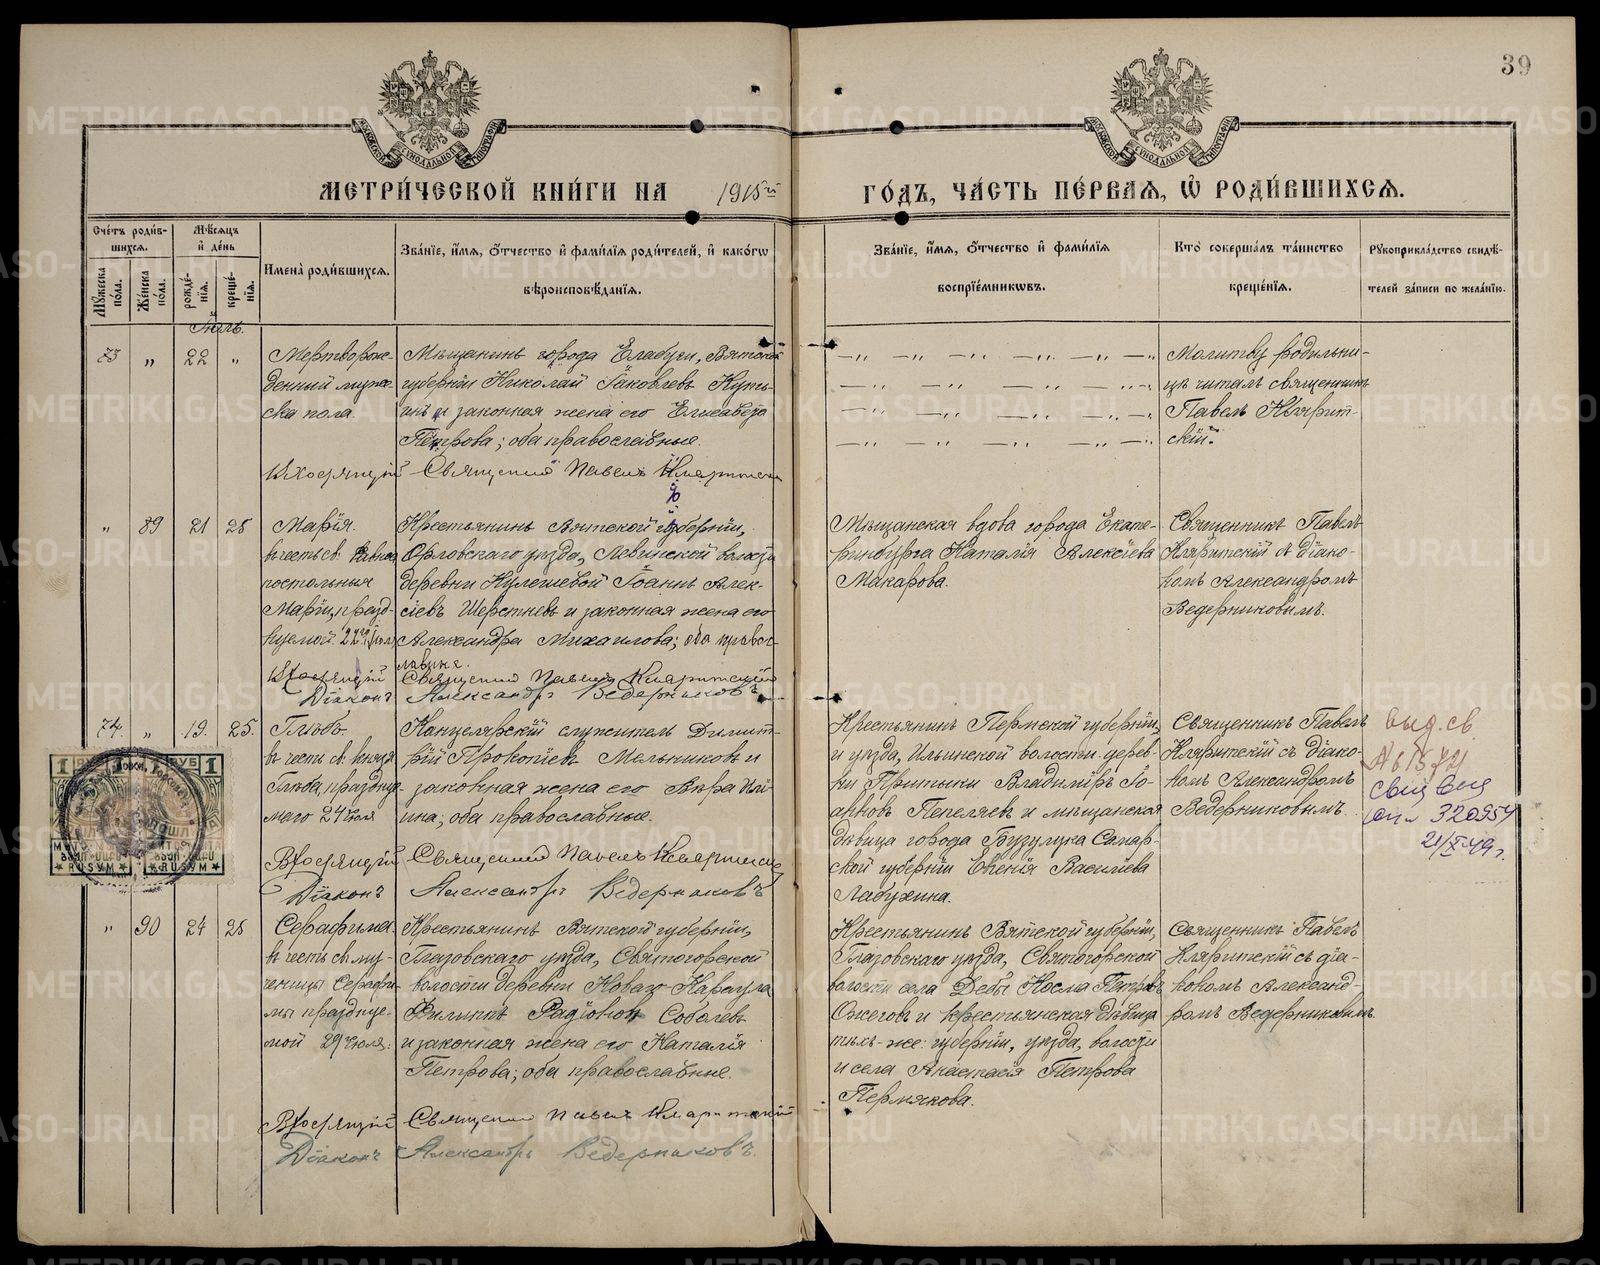 39
МЕТРИ́ЧЕСКОЙ КНИ́ГИ НА 1915й ГО́ДЪ, ЧА́СТЬ ПЕ́РВАѦ, Ѿ РОДИ́ВШИХСѦ.
Сче́тъ роди́в-
шихсѧ.
Мꙋ́жеска по́ла.
Же́нска по́ла.
Мѣ́сѧцъ
и҆ де́нь
рожде́-
нїѧ.
креще́-
нїѧ.
И҆мена̀ роди́вшихсѧ.
Зва́нїе, и҆́мѧ, ѻ҆́тчество и҆ фами́лїѧ роди́телей, и҆ како́гѡ
вѣроисповѣ́данїѧ.
Зва́нїе, и҆́мѧ, ѻ҆́тчество и҆ фами́лїѧ
воспрїе́мникѡвъ.
Кто̀ соверша́лъ та́инство
креще́нїѧ.
Рꙋкоприкла́дство свидѣ́-
телей за́писи по жела́нїю.
Іюль.
73 „ 22 „
Мертворож-
денный муже-
ска пола.
Мѣщанинъ города Елабуги, Вятской
губерніи Николай Іаковлевъ Куть-
инъ и законная жена его Елисавета
Петрова; оба православные.
Молитву родильни-
цѣ читалъ священникъ
Павелъ Кляритскій.
Священникъ Павелъ Кляритскій
„ 89 21 28
Марія.
въ честь св. равноа
постольныя
Маріи, празд-
нуемой 22го Іюля
Крестьянинъ Вятской губерніи,
Орловскаго уѣзда, Левинской волости
деревни Кулешевой Іоаннъ Алек-
сіевъ Шерстневъ и законная жена его
Александра Михаилова; оба право-
славные.
Мѣщанская вдова города Екате-
ринбурга Наталія Алексіева
Макарова.
Священникъ Павелъ
Кляритскій съ діако-
номъ Александромъ
Ведерниковымъ.
Священникъ Павелъ Кляритскій
Діаконъ Александръ Ведерниковъ
74. „ 19. 25.
Глѣбъ.
въ честь св. князя
Глѣба, праздну-
емаго 24 Іюля
Канцелярскій служитель Димит-
рій Прокопіевъ Мельниковъ и
законная жена его Вѣра Илі-
ина; оба православные.
Крестьянинъ Пермской губерніи,
и уѣзда, Ильинской волости дерев-
ни Притыки Владиміръ Іо-
анновъ Пепеляевъ и мѣщанская
дѣвица города Бузулука Самар-
ской губерніи Евгенія Василіева
Лабузина.
Священникъ Павелъ
Кляритскій съ діако-
номъ Александромъ
Ведерниковымъ.
выд. св.
№ 1572
320954
21/X-49 г.
1 1 РУБ 1
RUSYM RUSYM
Священникъ Павелъ Кляритскій
Діаконъ Александръ Ведерниковъ
„ 90 24 28
Серафима.
въ честь св. му-
ченицы Серафи-
мы празднуе-
мой 29 Іюля.
Крестьянинъ Вятской губерніи,
Глазовскаго уѣзда, Святогорской
волости деревни Новаго Караула
Филиппъ Радіоновъ Соболевъ
и законная жена его Наталія
Петрова; оба православные.
Крестьянинъ Вятской губерніи,
Глазовскаго уѣзда, Святогорской
волости села Дебы Косма Петровъ
Ожеговъ и крестьянская дѣвица
тѣхъ-же: губерніи, уѣзда, волости
и села Анастасія Петрова
Пермякова.
Священникъ Павелъ
Кляритскій съ діа-
кономъ Александ-
ромъ Ведерниковымъ
Священникъ Павелъ Кляритскій
Діаконъ Александръ Ведерниковъ.
METRIKI.GASO-URAL.RU